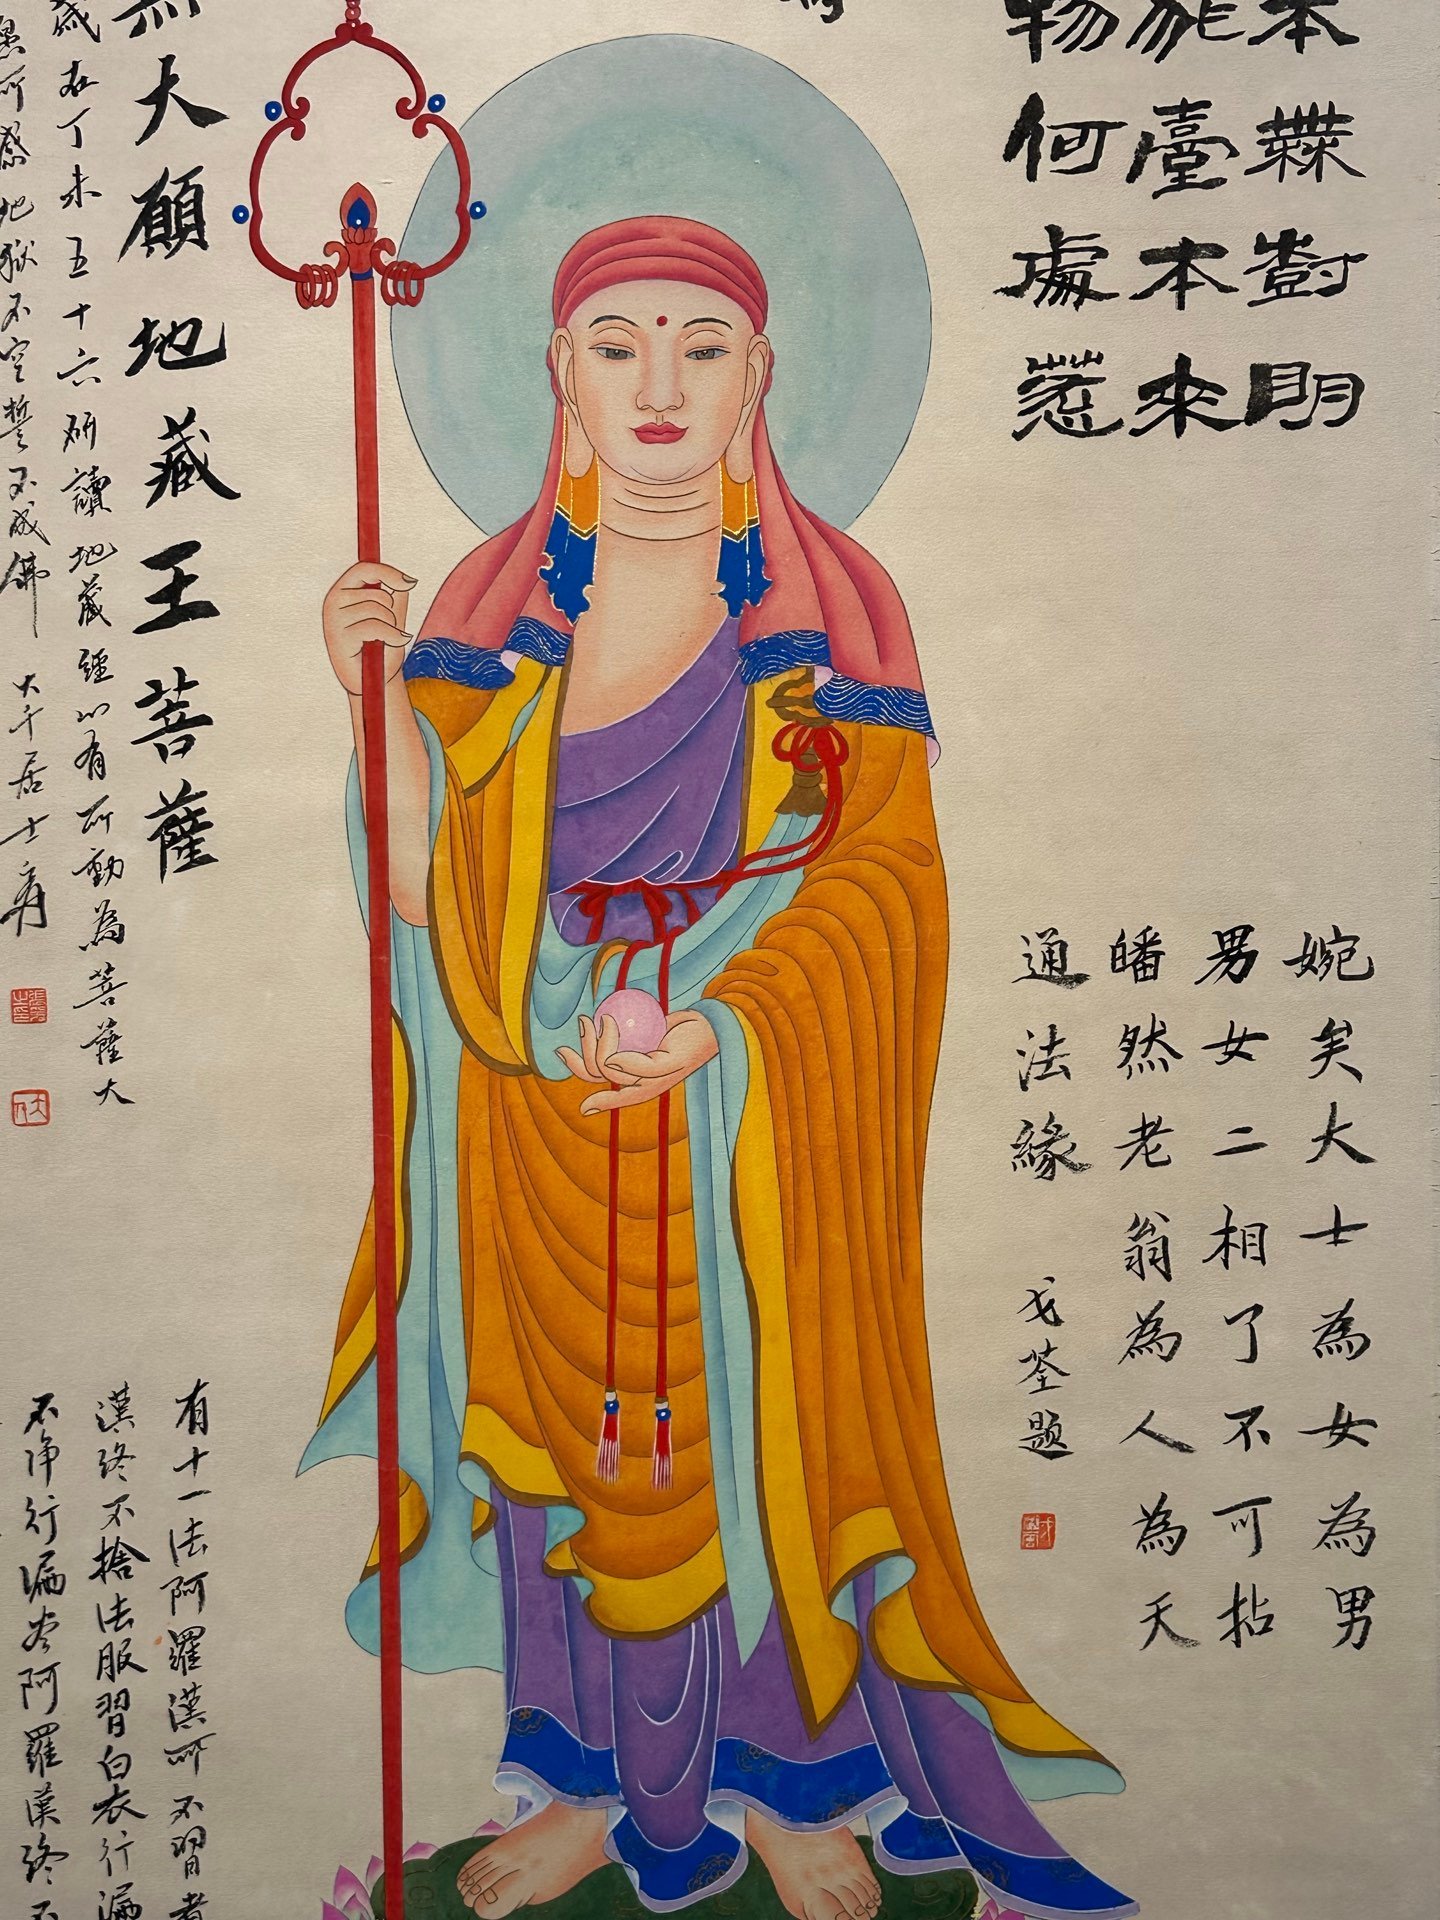 本無樹明
非臺本來
物何處惹
婉矣大士為女為男
男女二相了不可拈
皤然老翁為人為天
通法緣 戈荃題
無大願地藏王菩薩
歲在丁未五十六研讀地藏經心有所動為菩薩大
愚所感地獄不空誓不成佛 大千居士爰
有十一法阿羅漢所不習者
漢終不捨法服習白衣行漏
不淨行漏盡阿羅漢終不